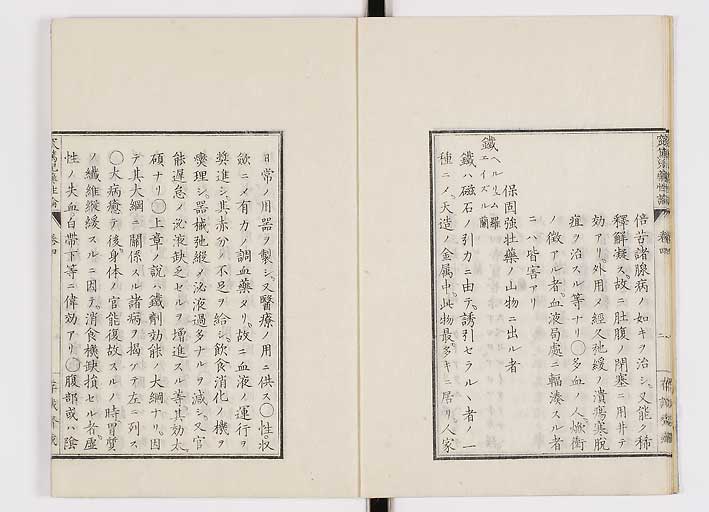 倍苦諸腺病ノ如キヲ治シ。又能ク稀
釋解凝ス。故ニ肚腹ノ閉塞ニ用井テ
効アリ。外用〆經久弛緩ノ潰瘍寒脫
疽ヲ治スル等ナリ〇多血ノ人焮衝
ノ徵アル者。血液局處ニ輻湊スル者
ニハ皆害アリ
保固強壮藥ノ山物ニ出ル者
鐵 ヘルリュム羅 エイズル蘭
鐵ハ磁石ノ引力ニ由テ。誘引セラルヽ者ノ一
種ニ〆。天造ノ金属中。此物最多キニ居リ。人家
日常ノ用器ヲ製シ。又醫療ノ用ニ供ス〇性。收
歛ニ〆有力ノ調血藥タリ。故ニ血液ノ運行ヲ
奬進シ。其赤分ノ不足ヲ給シ。飲食消化ノ機ヲ
爕理シ。器械弛緩〆泌液過多ナルヲ減シ。又官
能遲怠ノ泌液缺乏セルヲ増進スル等。其効太
碩ナリ〇上章ノ説ハ鐵劑効能ノ大綱ナリ。因
テ其大綱ニ關係スル諸病ヲ揭ケテ左ニ列ス
〇大病癒テ後。身体ノ官能復故スルノ時胃質
ノ纖維緩緩スルニ因テ。消食機缺損セル者。虚
性ノ失血。白帶下等ニ偉効アリ〇腹部或ハ陰
卷四